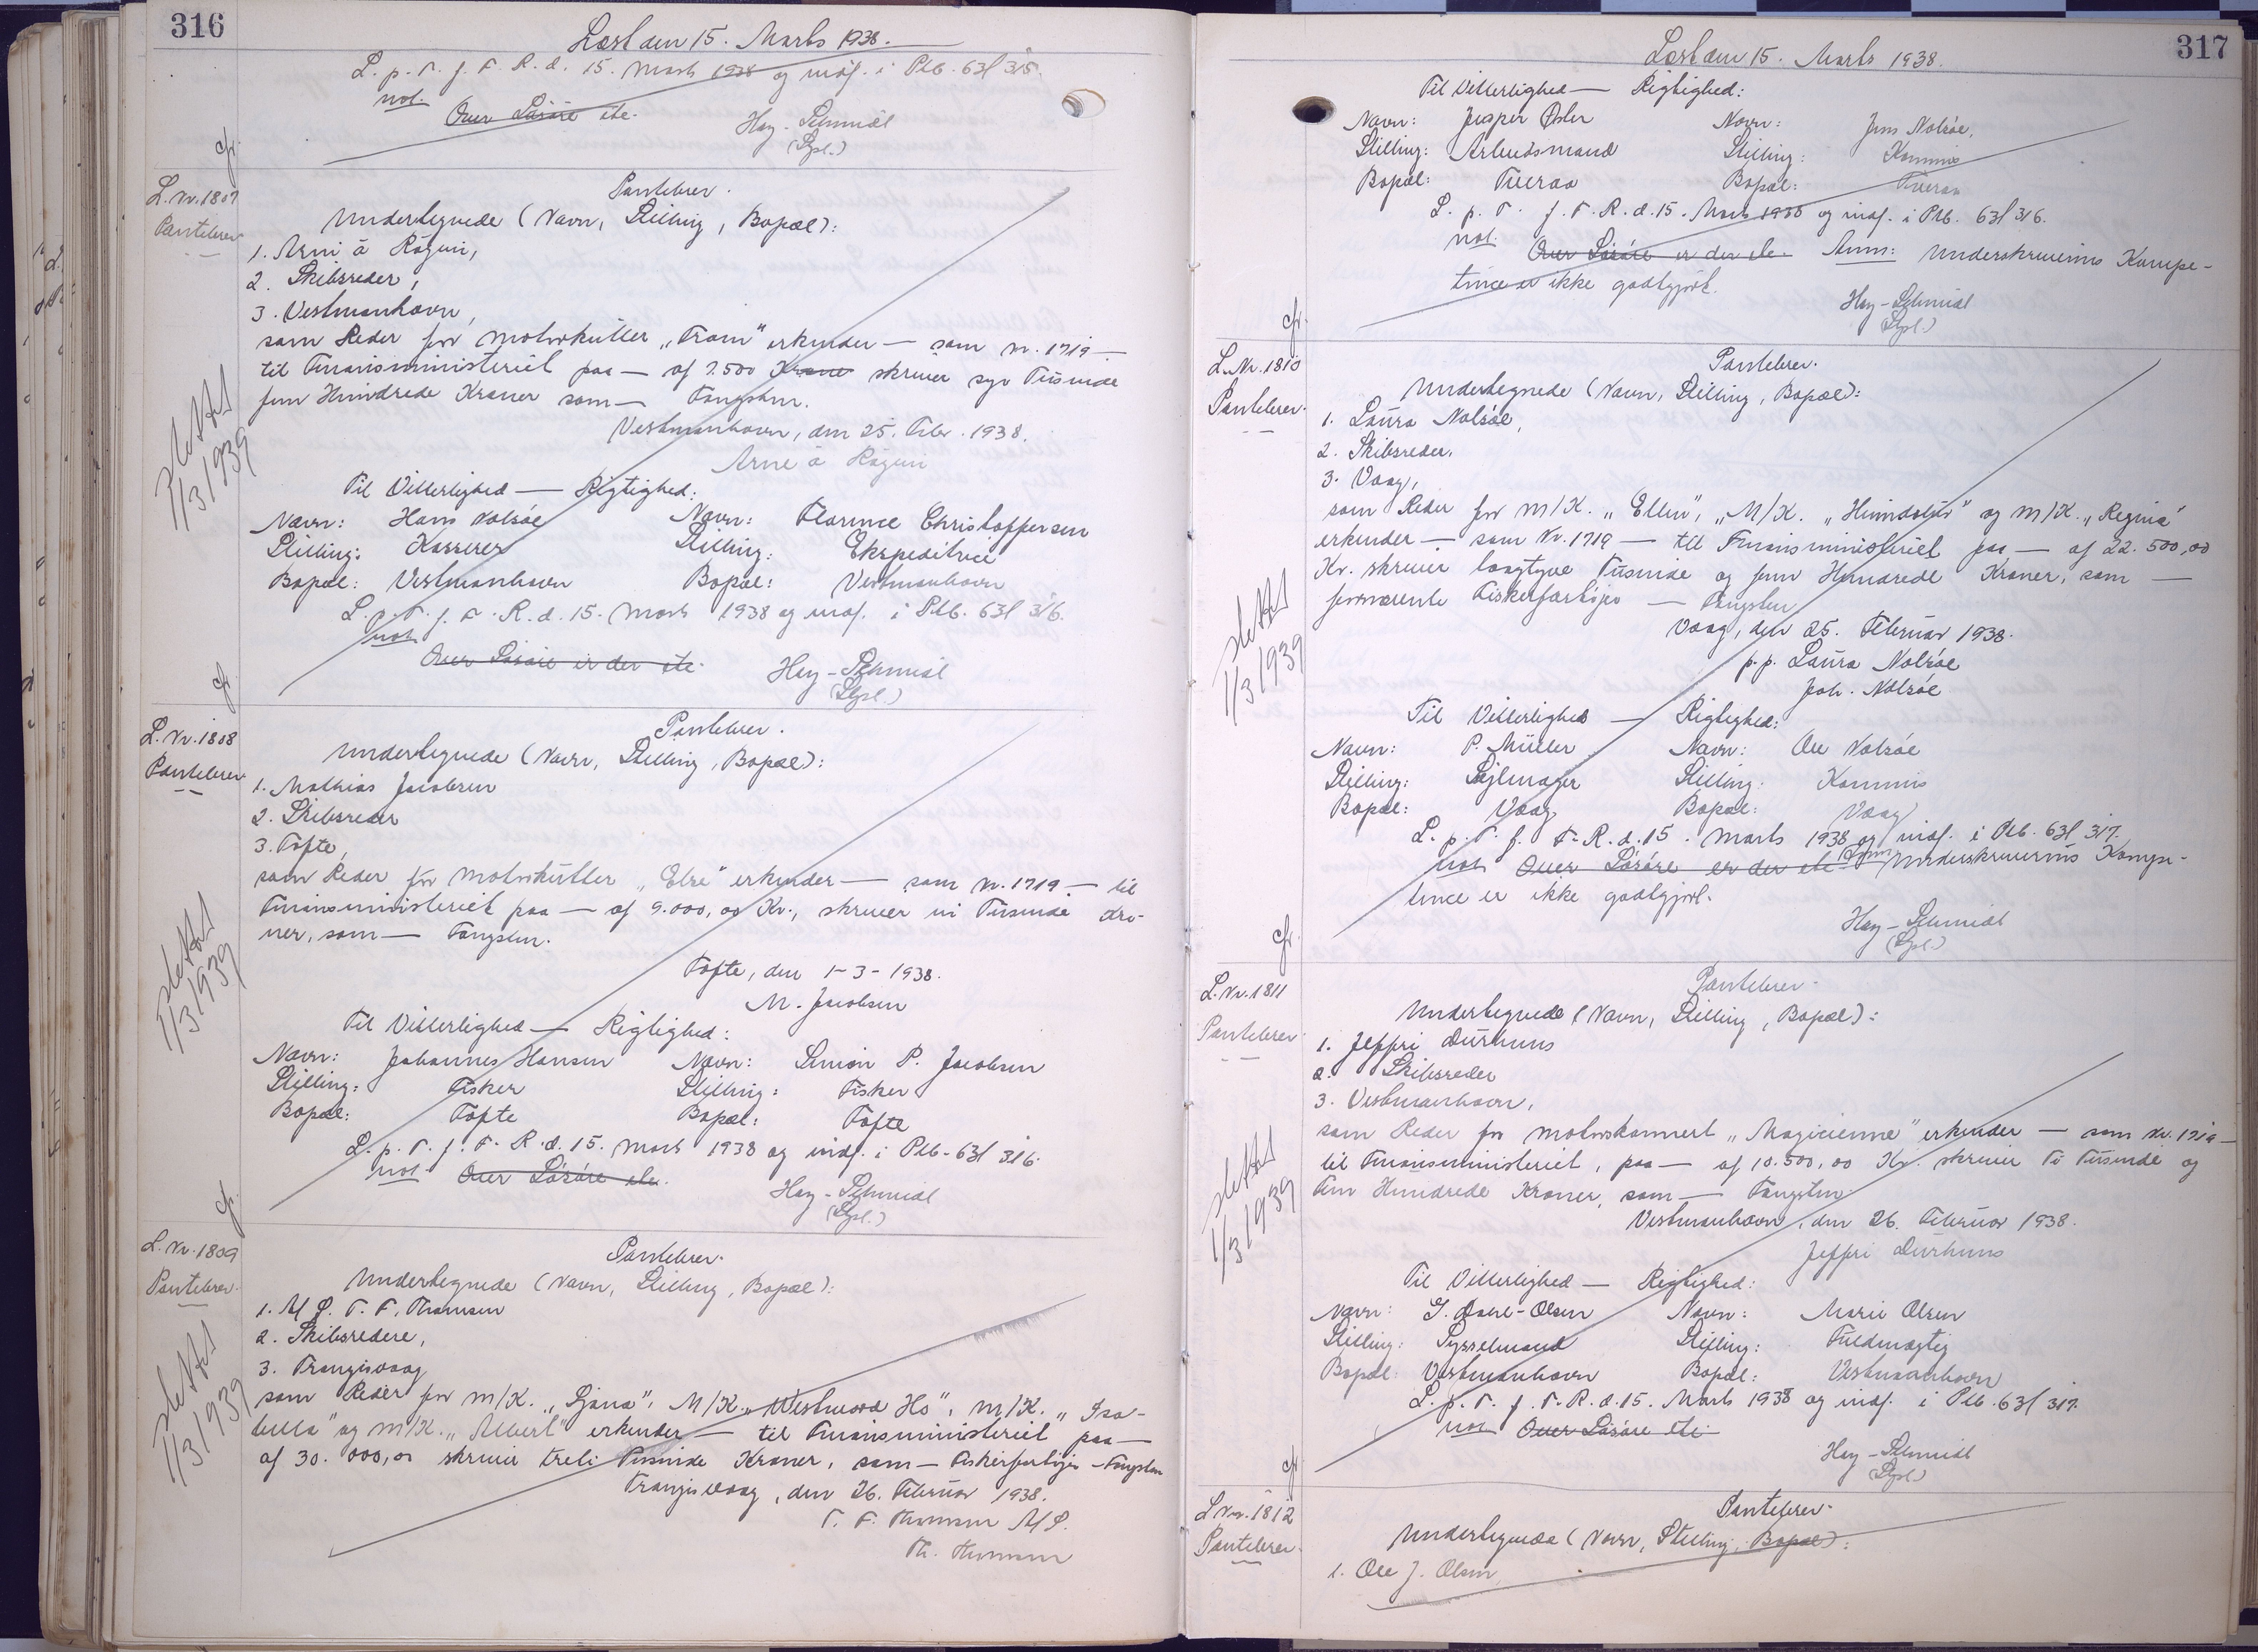 316
Læst den 15. Marts 1938.
L. p. T. f. F. R. d. 15. Marts 1938 og indf. i Ptb. 63f 315.
not.
Over Løsøre etc.
Hey-Schmidt
(Sysl.)
cfr.
L. Nr. 1807
Pantebrev
Pantebrev.
Undertegnede (Navn, Stilling, Bopæl):
1. Arni á Rógvi,
2. Skibsreder,
3. Vestmanhavn,
som Reder for Motorkutter "Fram" erkender — som Nr. 1719 —
til Finansministeriet paa — af 7.500 Krone skriver syv Tusinde
fem Hundrede Kroner som — Fangsten.
Vestmanhavn, den 25. Febr. 1938.
Arne á Rógvi
slettet
1/3 1939
Til Vitterlighed — Rigtighed:
Navn: Hans Nolsøe Navn: Florence Christoffersen
Stilling: Kasserer Stilling: Ekspeditrice
Bopæl: Vestmanhavn Bopæl: Vestmanhavn
L. p. T. f. F. R. d. 15. Marts 1938 og indf. i Ptb. 63f 316.
not
Over Løsøre er der etc.
Hey-Schmidt
(Sysl.)
cfr.
L. Nr. 1808
Pantebrev
Pantebrev.
Undertegnede (Navn, Stilling, Bopæl):
1. Mathias Jacobsen
2. Skibsreder
3. Tofte,
som Reder for Motorkutter "Else" erkender — som Nr. 1719 — til
Finansministeriet paa — af 9.000,00 Kr., skriver ni Tusinde Kro-
ner, som — Fangsten.
Tofte, den 1-3-1938.
M. Jacobsen
slettet
1/3 1939
Til Vitterlighed — Rigtighed:
Navn: Johannes Hansen Navn: Simon P. Jacobsen
Stilling: Fisker Stilling: Fisker
Bopæl: Tofte Bopæl: Tofte
L. p. T. f. F. R. d. 15. Marts 1938 og indf. i Ptb. 63f 316.
not Over Løsøre etc.
Hey-Schmidt
(Sysl.)
cfr.
L. Nr. 1809
Pantebrev.
Pantebrev.
Undertegnede (Navn, Stilling, Bopæl):
1. A/S. T. F. Thomsen
2. Skibsredere,
3. Trangisvaag
som Reder for M/K. "Sjana", M/K. "Westward Ho", M/K. "Isa-
bella" og M/K. "Albert" erkender — til Finansministeriet paa —
af 30.000,00 skriver treti Tusinde Kroner, som — Fiskerfartøjer — Fangsten
Trangisvaag, den 26. Februar 1938.
T. F. Thomsen A/S.
Th. Thomsen
slettet
1/3 1939
317
Læst den 15. Marts 1938.
Til Vitterlighed — Rigtighed:
Navn: Jesper Øster Navn: Jens Nolsøe,
Stilling: Arbeidsmand Stilling: Kommis
Bopæl: Tveraa Bopæl: Tveraa
L. p. T. f. F. R. d. 15. Marts 1938 og indf. i Ptb. 63f 316.
not. Over Løsøre er der etc. Anm: Underskriverens Kompe-
tence er ikke godtgjort.
Hey-Schmidt
(Sysl.)
cfr.
L. Nr. 1810
Pantebrev.
Pantebrev.
Undertegnede (Navn, Stilling, Bopæl):
1. Laura Nolsøe,
2. Skibsreder,
3. Vaag,
som Reder for M/K. "Ellen", "M/K. "Heimdalur" og M/K. "Regina"
erkender — som Nr. 1719 — til Finansministeriet paa — af 22.500,00
Kr. skriver toogtyve Tusinde og fem Hundrede Kroner, som —
fornævnte Fiskerfartøjer — Fangsten
Vaag, den 25. Februar 1938.
p.p. Laura Nolsøe
Joh. Nolsøe
slettet
1/3 1939
Til Vitterlighed — Rigtighed:
Navn: P. Müller Navn: Ole Nolsøe
Stilling: Sejlmager Stilling: Kommis
Bopæl: Vaag Bopæl: Vaag
L. p. T. f. F. R. d. 15. Marts 1938 og indf. i Ptb. 63f 317.
not Over Løsøre er der etc Anm: Underskriverens Kompe-
tence er ikke godtgjort.
Hey-Schmidt
(Sysl.)
cfr.
L. Nr. 1811
Pantebrev
Pantebrev.
Undertegnede (Navn, Stilling, Bopæl):
1. Jeffri Durhuus
2. Skibsreder
3. Vestmanhavn,
som Reder for Motorskonnert "Magicienne" erkender — som Nr. 1719 —
til Finansministeriet, paa — af 10.500,00 Kr. skriver Ti Tusinde og
Fem Hundrede Kroner, som — Fangsten.
Vestmanhavn, den 26. Februar 1938.
Jeffri Durhuus
slettet
1/3 1939
Til Vitterlighed — Rigtighed:
Navn: S. Dahl-Olsen Navn: Marie Olsen
Stilling: Sysselmand Stilling: Fuldmægtig
Bopæl: Vestmanhavn Bopæl: Vestmanhavn
L. p. T. f. F. R. d. 15. Marts 1938 og indf. i Ptb. 63f 317.
not Over Løsøre etc
Hey-Schmidt
(Sysl.)
cfr.
L. Nr. 1812
Pantebrev.
Pantebrev.
Undertegnede (Navn, Stilling, Bopæl):
1. Ole J. Olsen,